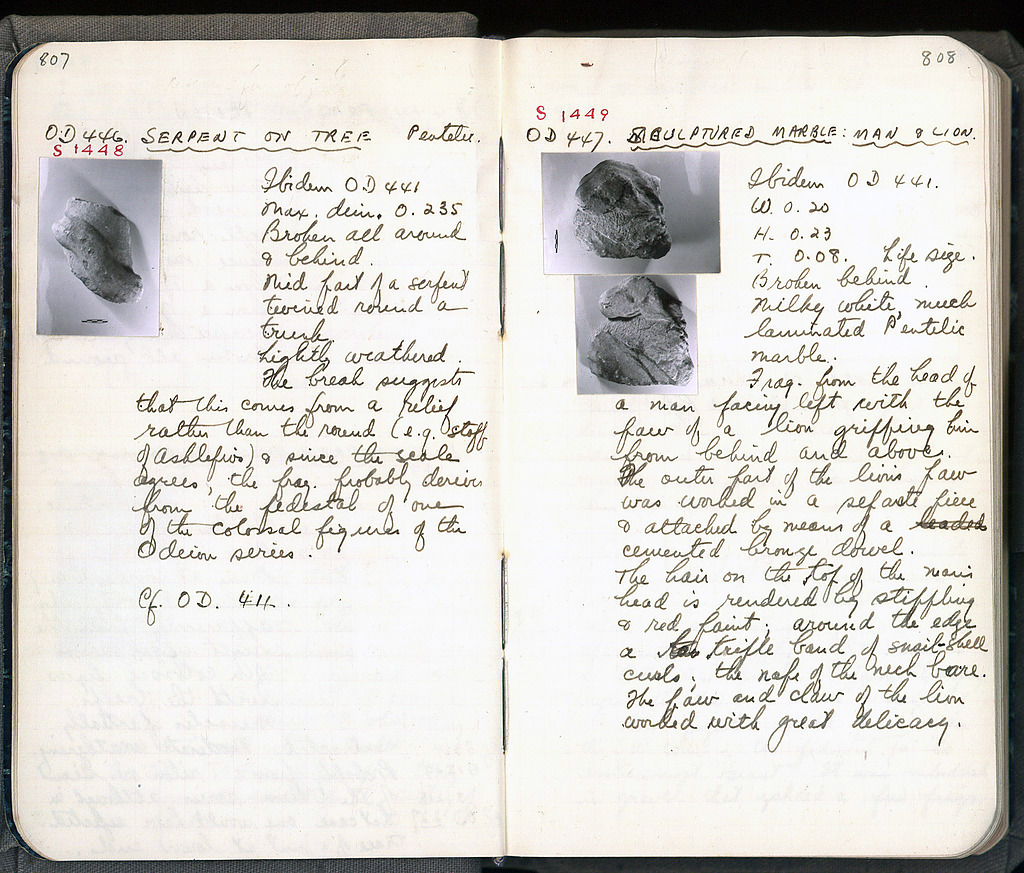 807
OD 446. SERPENT ON TREE Pentelic.
S 1448
Ibidem OD 441
Max. dim. 0.235
Broken all around
& behind.
Mid part of a serpent
twined round a
trunk.
Lightly weathered.
The break suggests
that this comes from a relief
rather than the round (e.g. staff
of Asklepios) & since the scale
agrees, the frag. probably derives
from the pedestal of one
of the colossal figures of the
Odeion series.
Cf. OD. 411.
808
S 1449
OD 447. SCULPTURED MARBLE: MAN & LION.
Ibidem OD 441.
W. 0.20
H. 0.23
T. 0.08. Life size.
Broken behind.
Milky white, much
laminated Pentelic
marble.
Frag. from the head of
a man facing left with the
paw of a lion gripping him
from behind and above.
The outer part of the lion's paw
was worked in a separate piece
& attached by means of a leaded
cemented bronze dowel.
The hair on the top of the man's
head is rendered by stippling
& red paint: around the edge
a triple band of snail-shell
curls; the nape of the neck bare.
The paw and claw of the lion
worked with great delicacy.